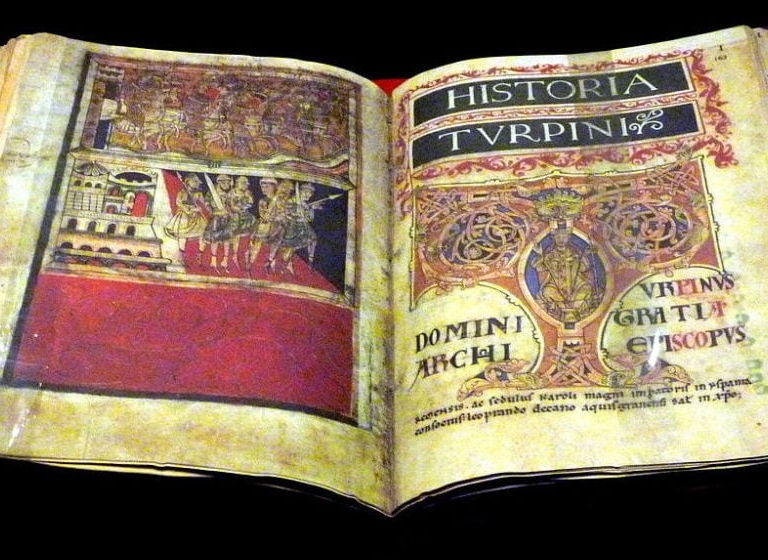 I
162
HISTORIA
TVRPINI
TVRPINVS
DOMINI GRATIA
ARCHI EPISCOPVS
remensis. ac sedulus karoli magni imperatoris in yspania
consocius. leoprando decano aquisgranensi sal in xpo;